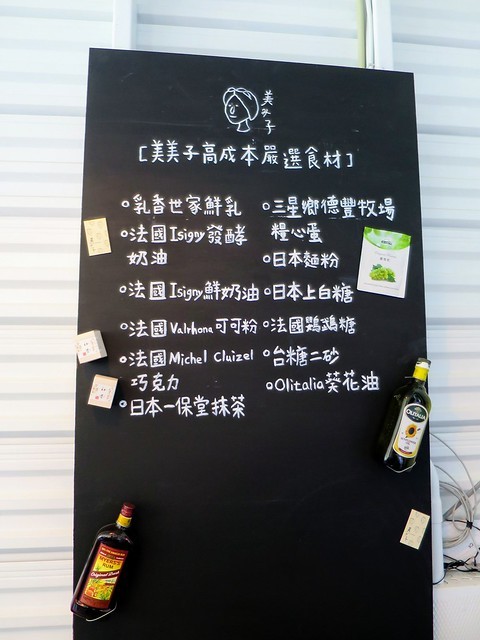 美み子
[美美子高成本嚴選食材]
○乳香世家鮮乳
○法國Isigny發酵
奶油
○法國Isigny鮮奶油
○法國Valrhona可可粉
○法國Michel Cluizel
巧克力
○日本一保堂抹茶
○三星鄉德豐牧場
糧心蛋
○日本麵粉
○日本上白糖
○法國鸚鵡糖
○台糖二砂
○Olitalia葵花油
OLITALIA
MYERS'S
RUM
Original Dark